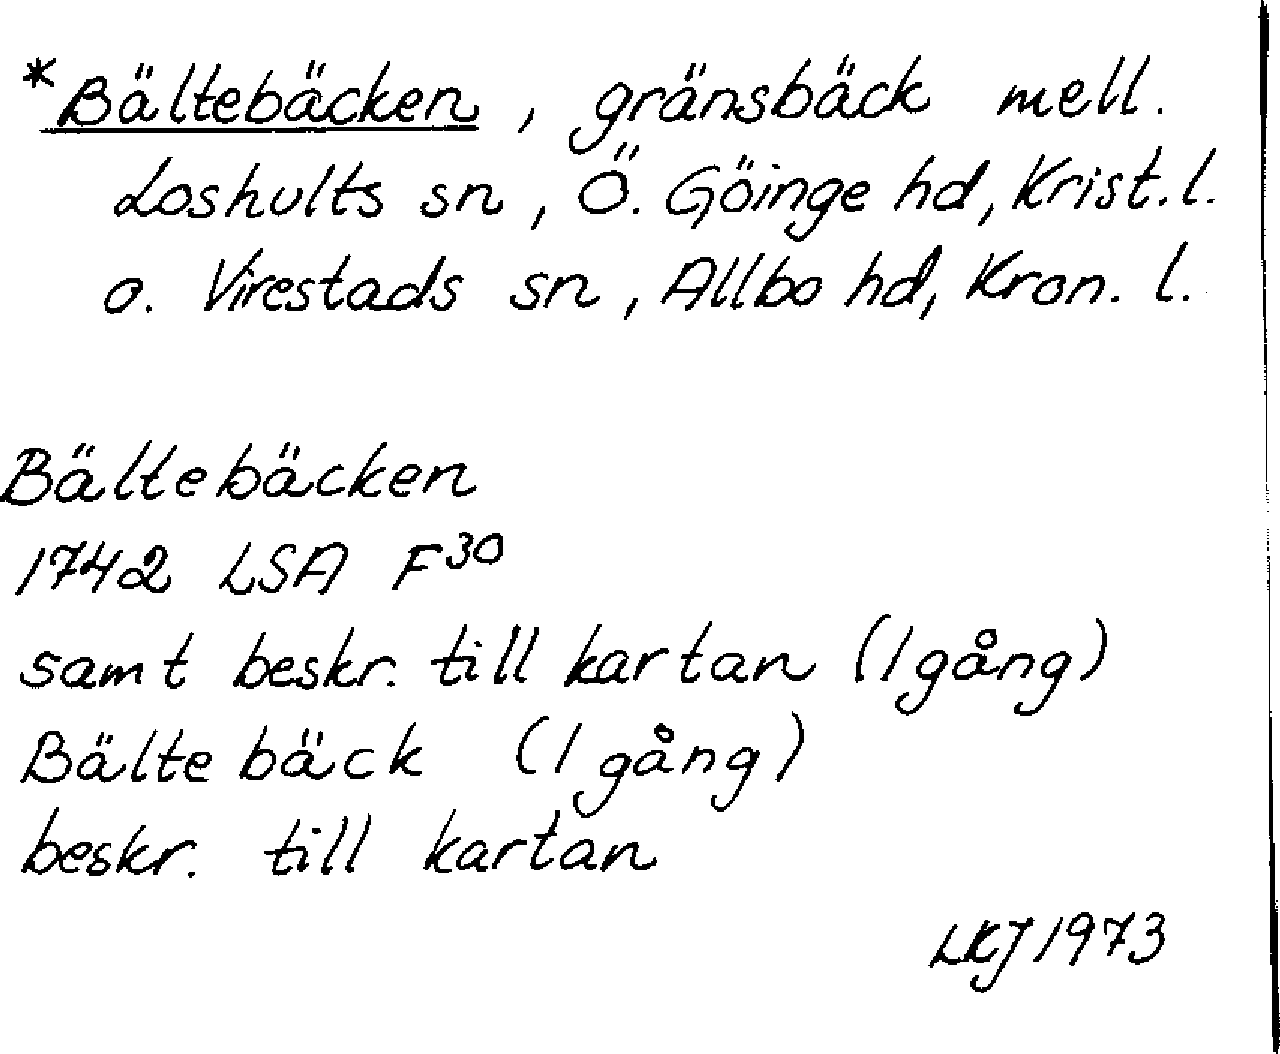 *Bältebäcken, gränsbäck mell.
Loshults sn, Ö. Göinge hd, Krist. l.
o. Virestads sn, Allbo hd, Kron. l.
Bältebäcken
1742 LSA F30
samt beskr. till kartan (1 gång)
Bälte bäck (1 gång)
beskr. till kartan
LKJ 1973